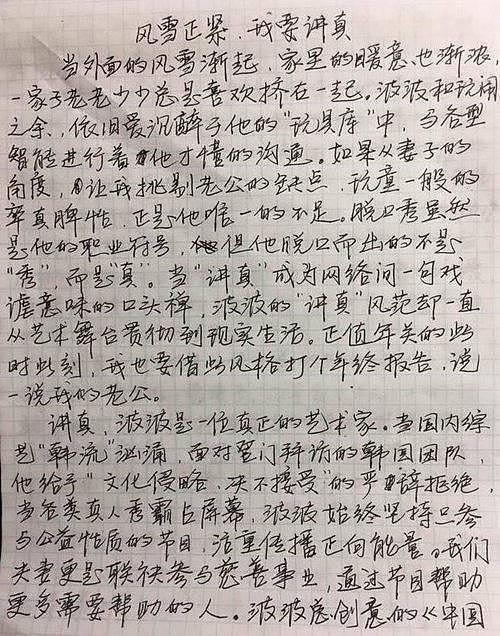 风雪正紧，我要讲真
当外面的风雪渐起，家里的暖意也渐浓，
一家子老老少少总是喜欢挤在一起。波波和玩闹
之余，依旧爱沉醉于他的“玩具库”中，与各型
智能进行着他才懂的沟通。如果从妻子的
角度，让我挑剔老公的缺点，玩童一般的
率真脾性，正是他唯一的不足。脱口秀虽然
是他的职业符号，但他脱口而出的不是
“秀”，而是“真”。当“讲真”成为网络间一句戏
谑意味的口头禅，波波的“讲真”风范却一直
从艺术舞台贯彻到现实生活。正值年关的此
时此刻，我也要借此风格打个年终报告，说
一说我的老公。
讲真，波波是一位真正的艺术家。当国内综
是“韩流”汹涌，面对登门拜访的韩国团队，
他给予“文化侵略，决不接受”的严辞拒绝，
当各类真人秀霸占屏幕，波波始终坚持只参
与公益性质的节目，注重传播正向能量。我们
夫妻更是联袂参与慈善事业，通过节目帮助
更多需要帮助的人。波波总创意的《中国